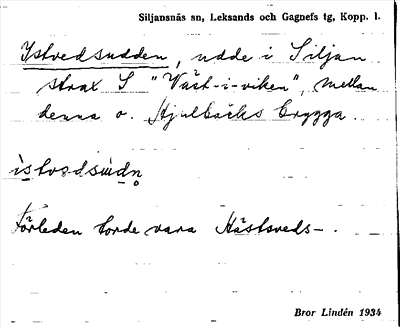 Siljansnäs sn, Leksands och Gagnefs tg, Kopp. l.
Ystvedsudden, udde i Siljan
strax S "Väst-i-viken", mellan
denna o. Hjulbäcks brygga.
Förleden torde vara Hästsveds-.
Bror Lindén 1934